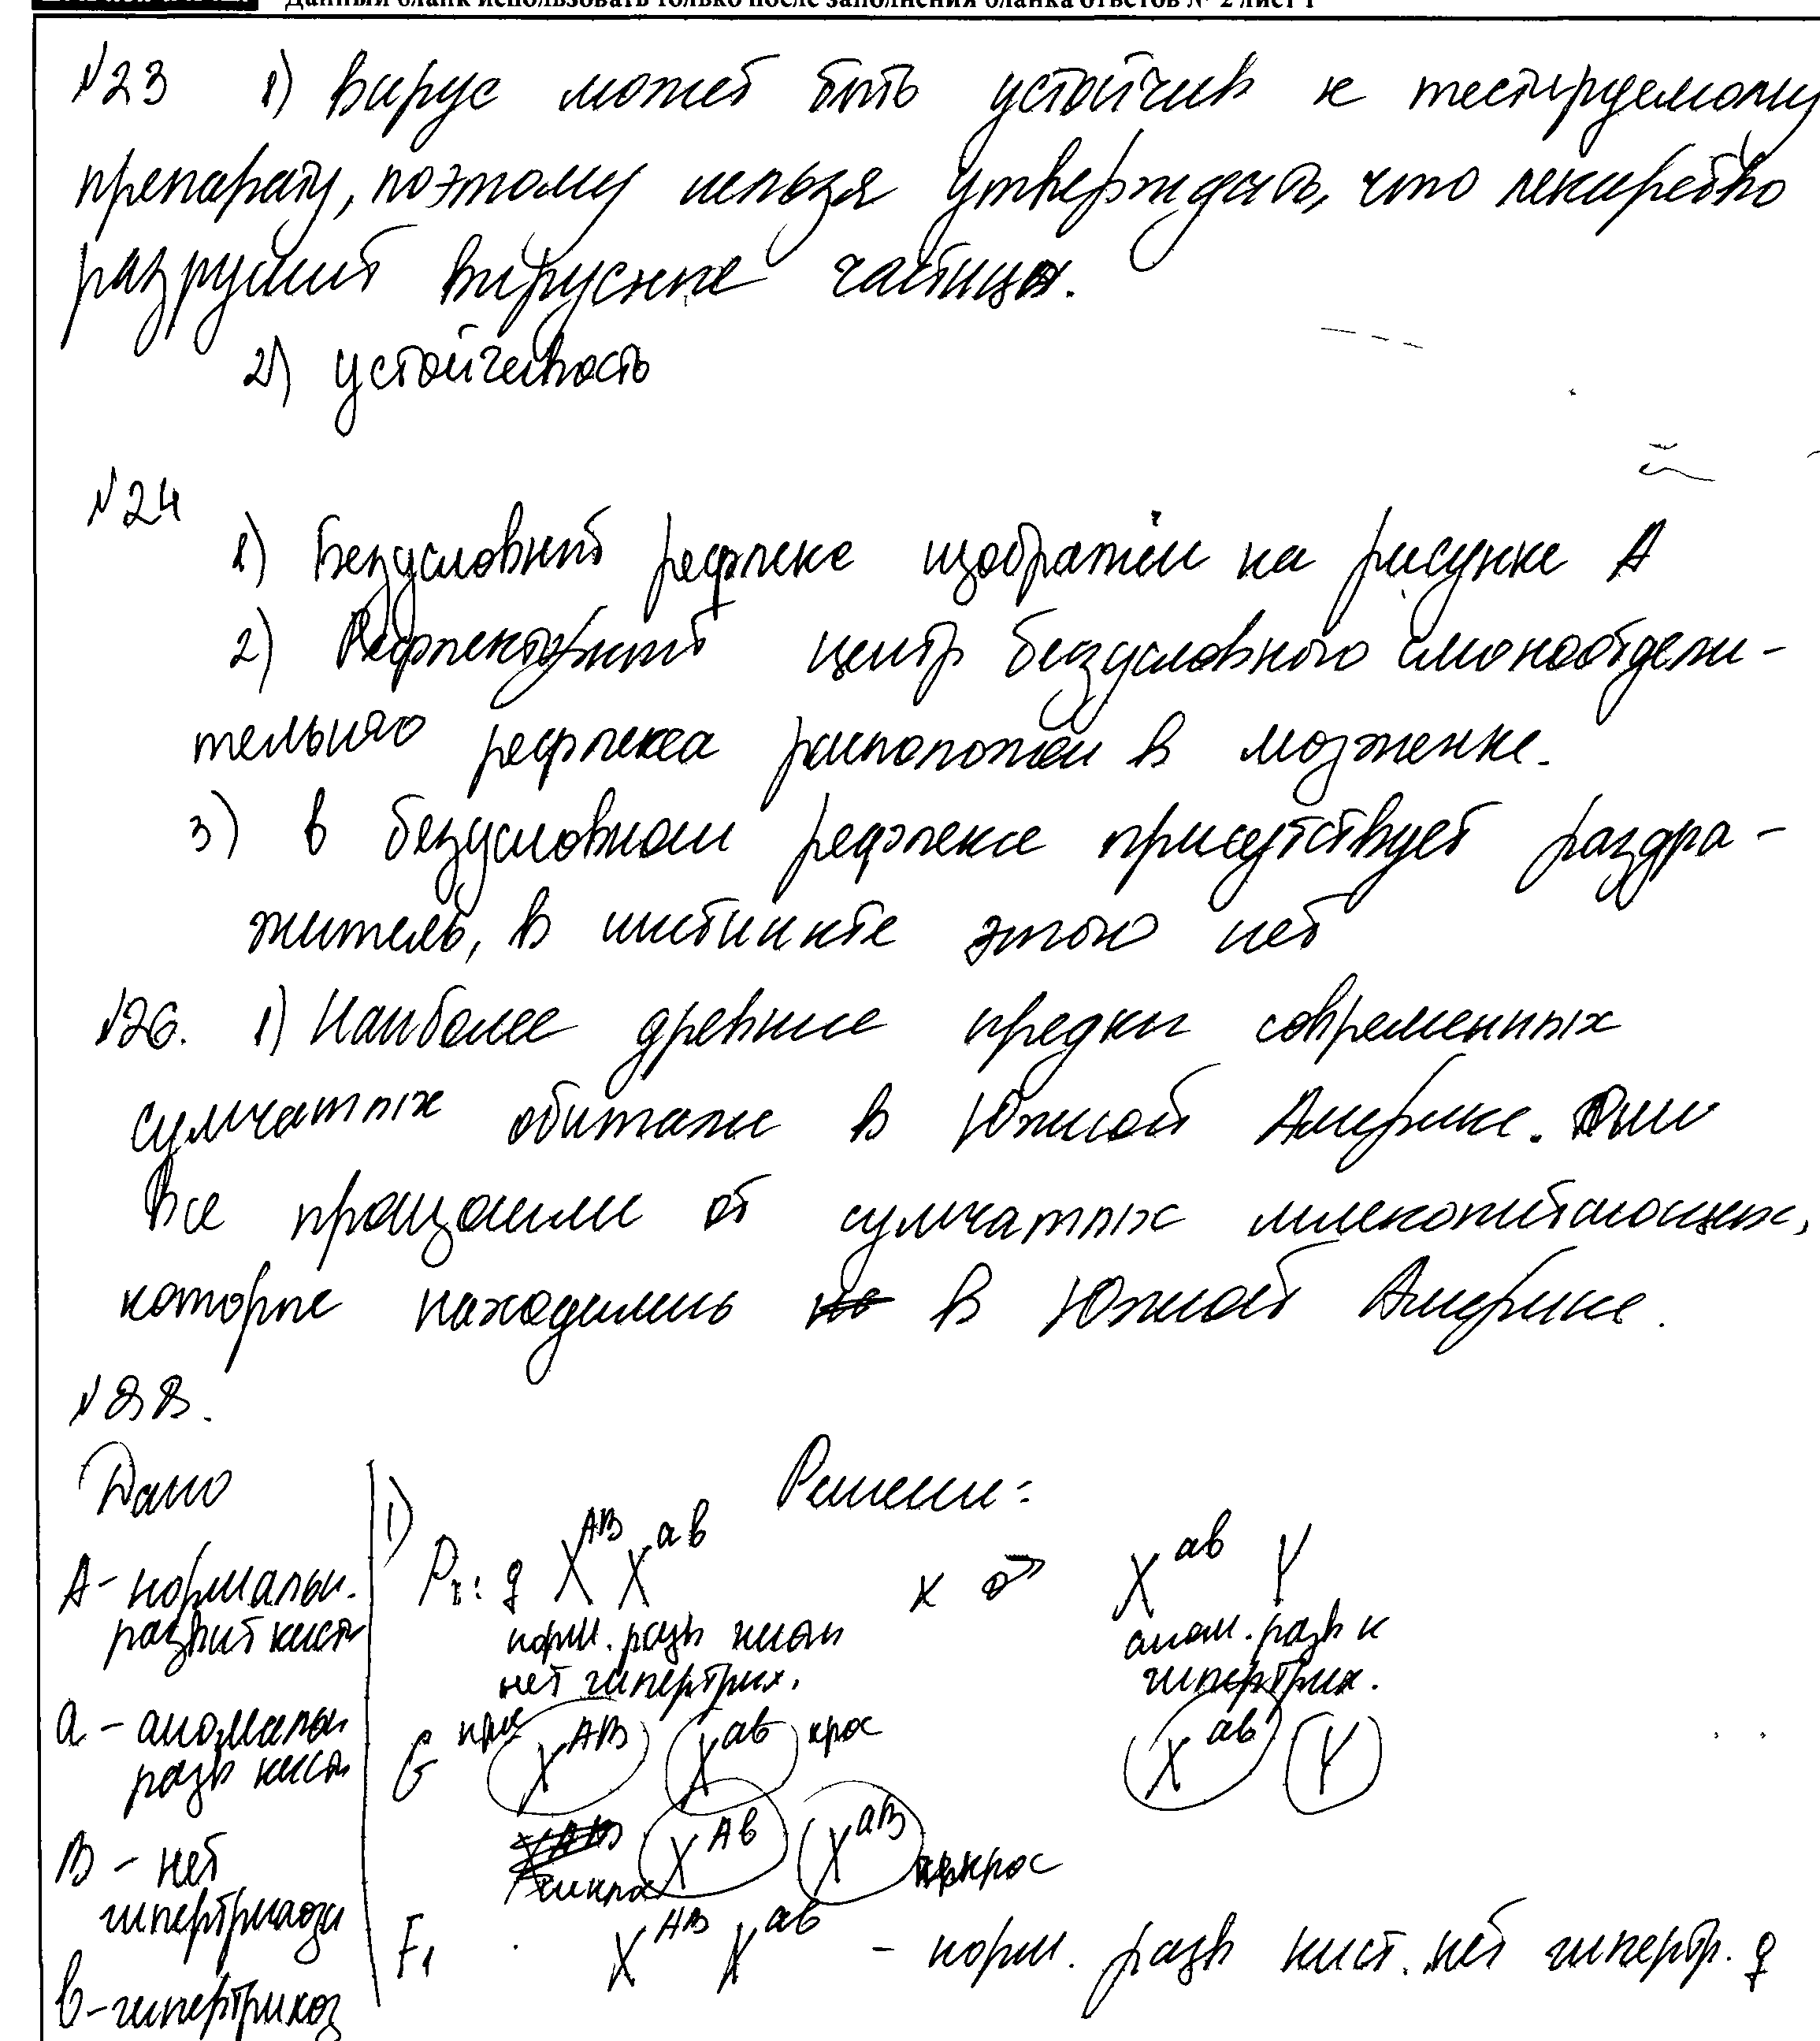 Данный бланк использовать только после заполнения бланка ответов № 2 лист 1
№23 1) Вирус может быть устойчив к тестируемому
препарату, поэтому нельзя утверждать, что лекарство
разрушит вирусные частицы.
2) устойчивость
№24
1) Безусловный рефлекс изображён на рисунке А
2) Рефлекторный центр безусловного слюноотдели-
тельного рефлекса расположен в мозжечке.
3) в безусловном рефлексе присутствует раздра-
житель, в инстинкте этого нет
№26. 1) Наиболее древние предки современных
сумчатых обитали в Южной Америке. Они
все произошли от сумчатых млекопитающих,
которые находились в Южной Америке.
№28.
Дано
Решение:
А - нормальн.
развит кист
а - аномальн
разв кист
В - нет
гипертрихоза
в - гипертрихоз
1) P₁: ♀ X^АВ X^ав x ♂ X^ав Y
норм. разв кисти аном. разв и
нет гипертрих. гипертрих.
G X^АВ X^ав крос X^ав Y
X^Ав X^аВ
F₁ X^АВ X^ав - норм. разв кист. нет гипертр. ♀